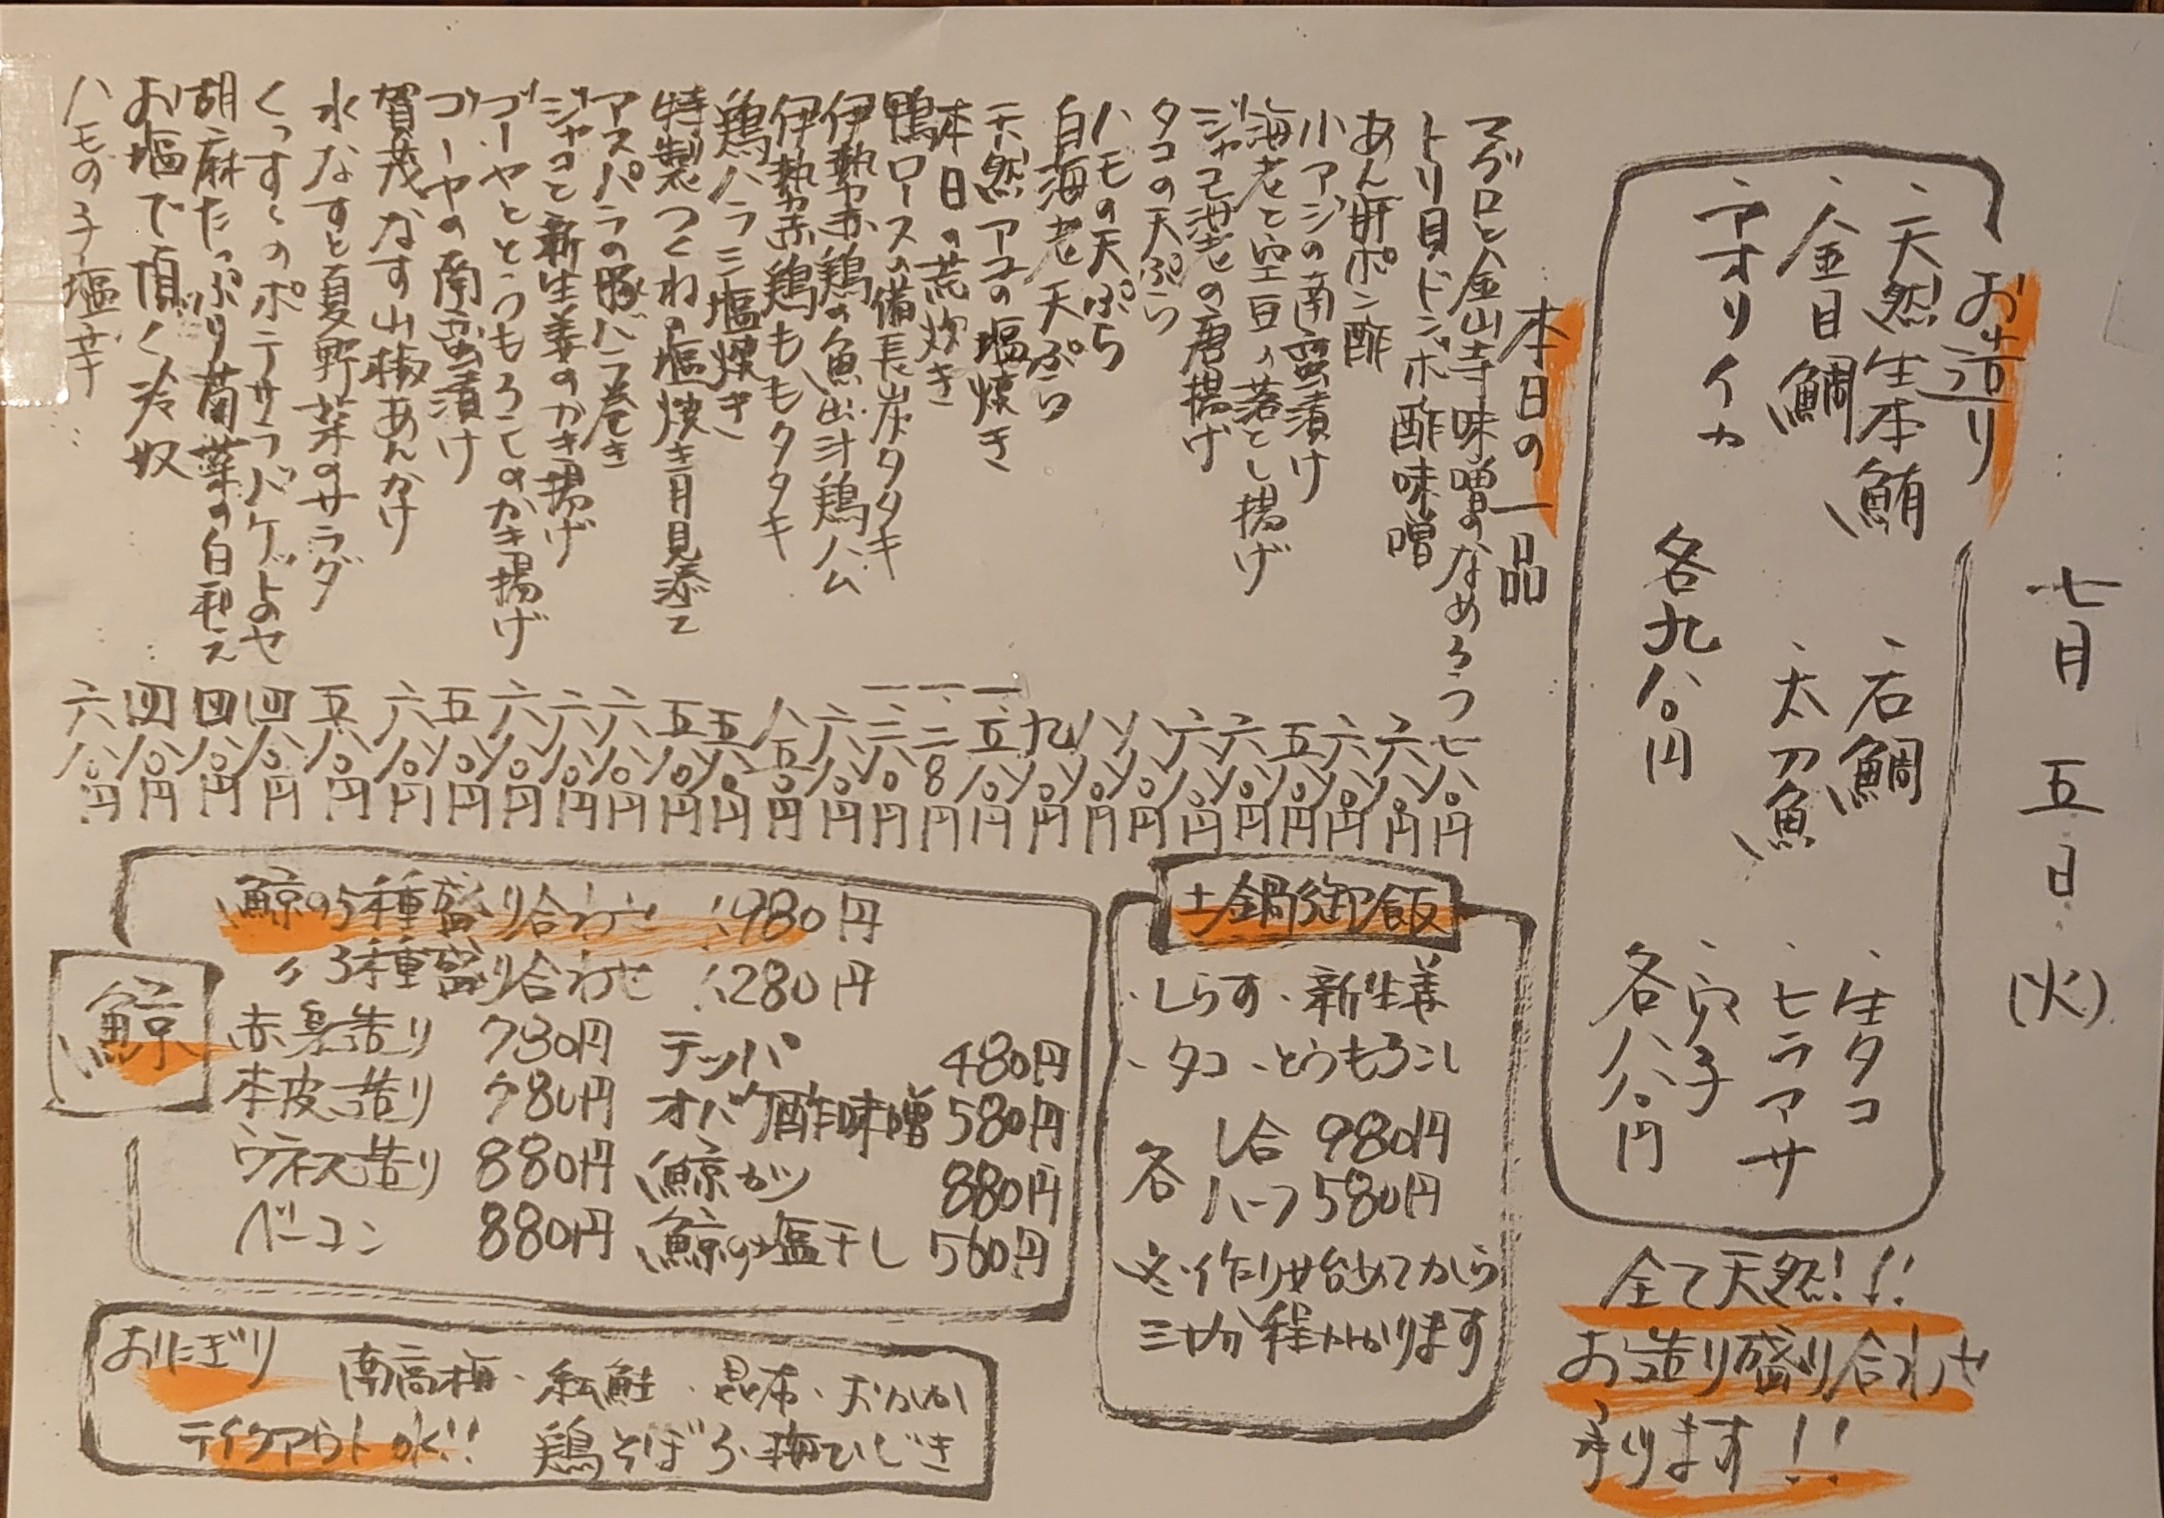 七月五日(火)
お造り
・天然生本鮪
・石鯛
・生タコ
・金目鯛
・太刀魚
・ヒラマサ
・アオリイカ
・穴子
各九八〇円
各八八〇円
全て天然!!!
お造り盛り合わせ
承ります!!
本日の一品
マグロと金山寺味噌のなめろう 七八〇円
トリ貝ドンボ酢味噌 六八〇円
あん肝ポン酢 六八〇円
小アジの南蛮漬け 五八〇円
海老と空豆の落とし揚げ 六八〇円
ジャコ海老の唐揚げ 六八〇円
タコの天ぷら 八八〇円
ハモの天ぷら 八八〇円
白海老天ぷら 九八〇円
天然アユの塩焼き 一、五八〇円
本日の荒炊き 一、二八〇円
鴨ロースの備長炭タタキ 一、三八〇円
伊勢赤鶏の魚出汁鶏ハム 六八〇円
伊勢赤鶏ももタタキ 八八〇円
鶏ハラミ塩焼き 五八〇円
特製つくねの塩焼き月見添て 五八〇円
アスパラの豚バラ巻き 六八〇円
ジャコと新生姜のかき揚げ 六八〇円
ゴーヤととうもろこしのかき揚げ 六八〇円
ゴーヤの南蛮漬け 五八〇円
賀茂なす山椒あんかけ 六八〇円
水なすと夏野菜のサラダ 五八〇円
くっすぅのポテサラバゲットのせ 四八〇円
胡麻たっぷり菊菜の白和え 四八〇円
お塩で頂く冷奴 四八〇円
ハモの子塩辛 六八〇円
土鍋御飯
・しらす・新生姜
・タコ・とうもろこし
各 1合 980円
ハーフ 580円
※作り始めてから
三十分程かかります
鯨
鯨の5種盛り合わせ 1,980円
〃 3種盛り合わせ 1,280円
赤身造り 780円
テッパ 480円
本皮造り 780円
オバケ酢味噌 580円
ウネス造り 880円
鯨カツ 880円
ベーコン 880円
鯨の塩干し 560円
おにぎり
南高梅・紅鮭・昆布・おかか
テイクアウトOK!! 鶏そぼろ・梅ひじき